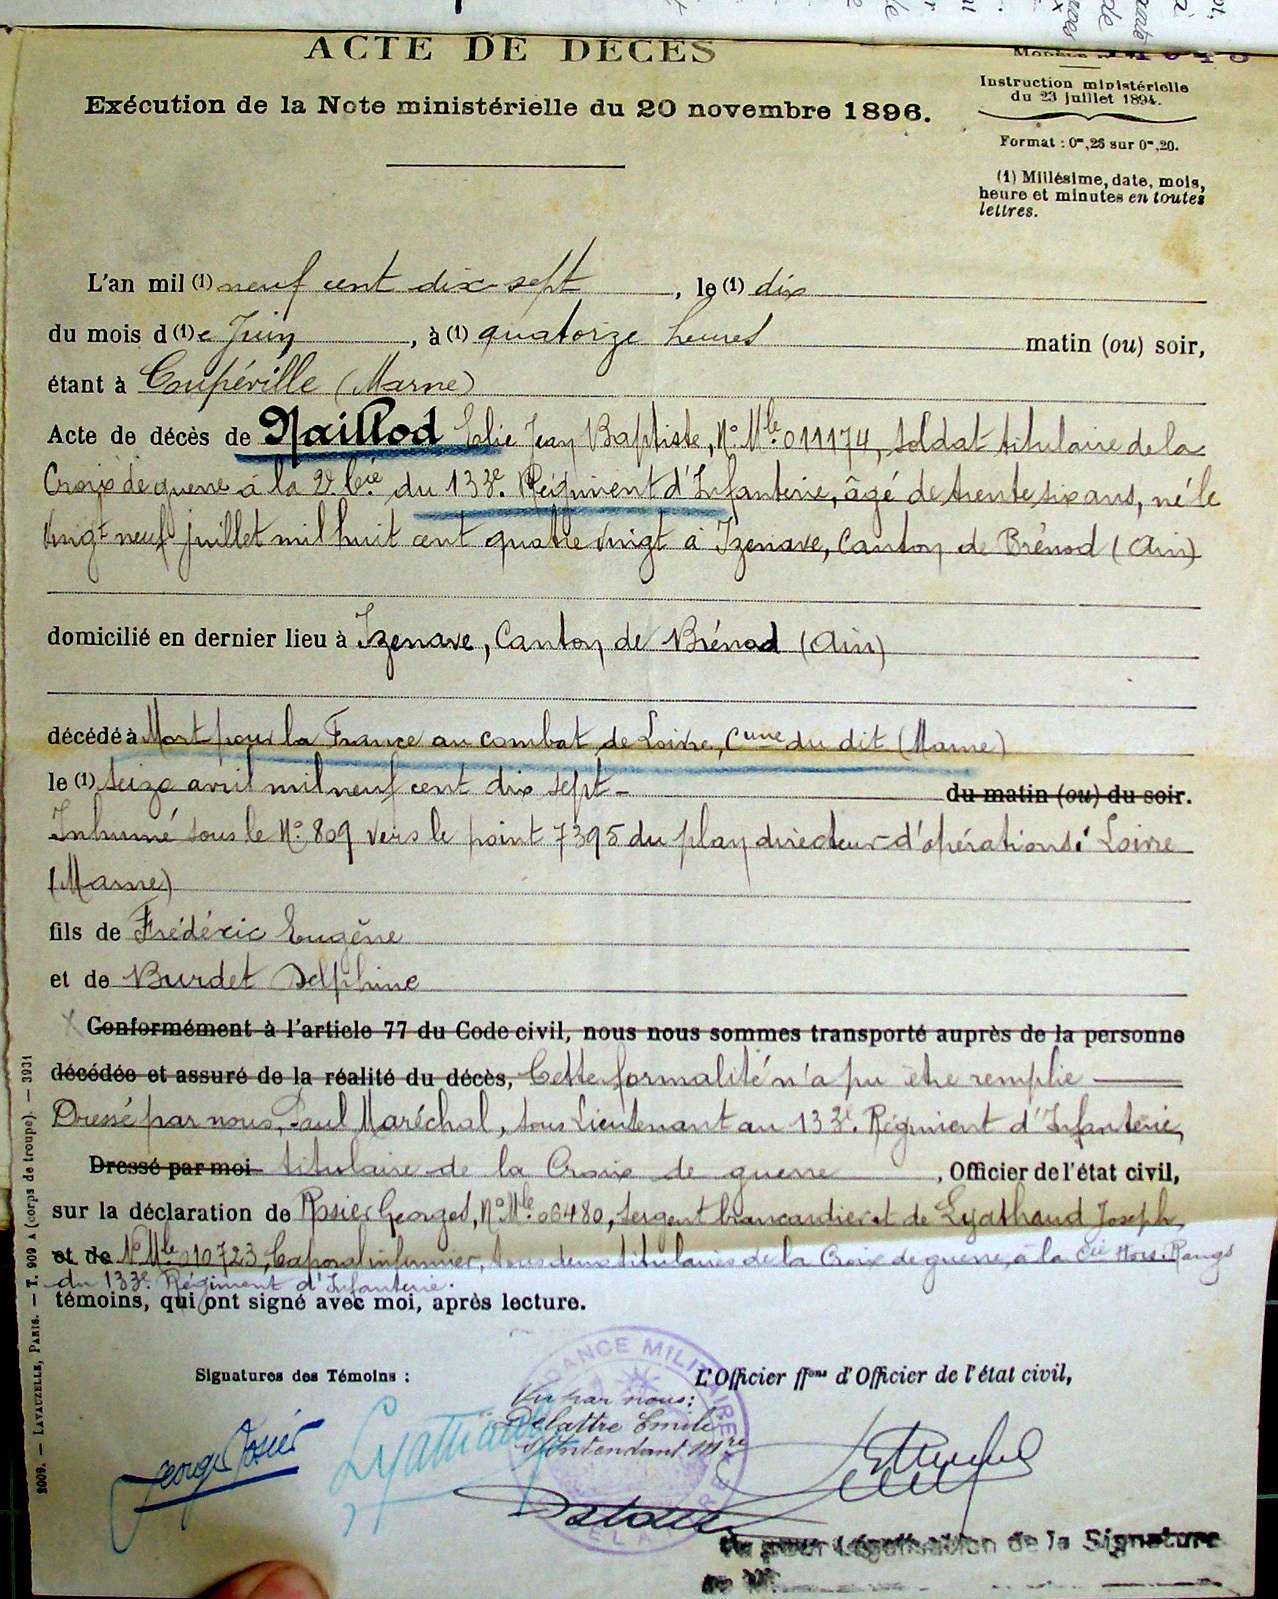 ACTE DE DÉCÈS
Exécution de la Note ministérielle du 20 novembre 1896.
Instruction ministérielle
du 23 juillet 1894.
Format : 0m,26 sur 0m,20.
(1) Millésime, date, mois,
heure et minutes en toutes
lettres.
L'an mil (1) neuf cent dix-sept, le (1) dix
du mois d(1)e Juin, à (1) quatorze heures matin (ou) soir,
étant à Coupéville (Marne)
Acte de décès de Maillod Jean Baptiste, No Mle 011174, soldat titulaire de la
Croix de guerre à la 2e Cie du 133e Régiment d'Infanterie, âgé de trente six ans, né le
vingt neuf juillet mil huit cent quatre vingt à Izenave, Canton de Brénod (Ain)
domicilié en dernier lieu à Izenave, Canton de Brénod (Ain)
décédé à Mort pour la France au combat de Loivre, Cune du dit (Marne)
le (1) seize avril mil neuf cent dix sept - du matin (ou) du soir.
Inhumé sous le No 809 vers le point 7395 du plan directeur d'opérations: Loivre
(Marne)
fils de Frédéric Eugène
et de Burdet Delphine
Conformément à l'article 77 du Code civil, nous nous sommes transporté auprès de la personne
décédée et assuré de la réalité du décès, Cette formalité n'a pu être remplie
Dressé par nous, Paul Maréchal, Sous Lieutenant au 133e Régiment d'Infanterie,
Dressé par moi titulaire de la Croix de guerre, Officier de l'état civil,
sur la déclaration de Rosier Georges, No Mle 06480, Sergent brancardier et de Lyathaud Joseph,
et de No Mle 010723, Caporal infirmier, tous deux titulaires de la Croix de guerre, à la Cie Hors-Rangs
du 133e Régiment d'Infanterie.
témoins, qui ont signé avec moi, après lecture.
Signatures des Témoins :
L'Officier ffons d'Officier de l'état civil,
Vu par nous:
Delattre Emile
S/Intendant Mre
Georges Rosier
Lyathaud
Delattre
Vu pour Légalisation de la Signature
de M.
2009. — LAVAUZELLE, PARIS. — T. 909 A (corps de troupe). — 3931